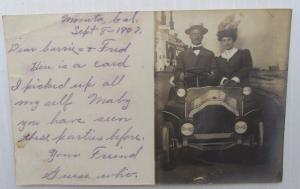 Monita, Cal.
Sept 5 - 1907.
Dear Carrie + Fred
Here is a card
I picked up all
my self. Maby
you have seen
these parties before.
Your Friend
Guess who.